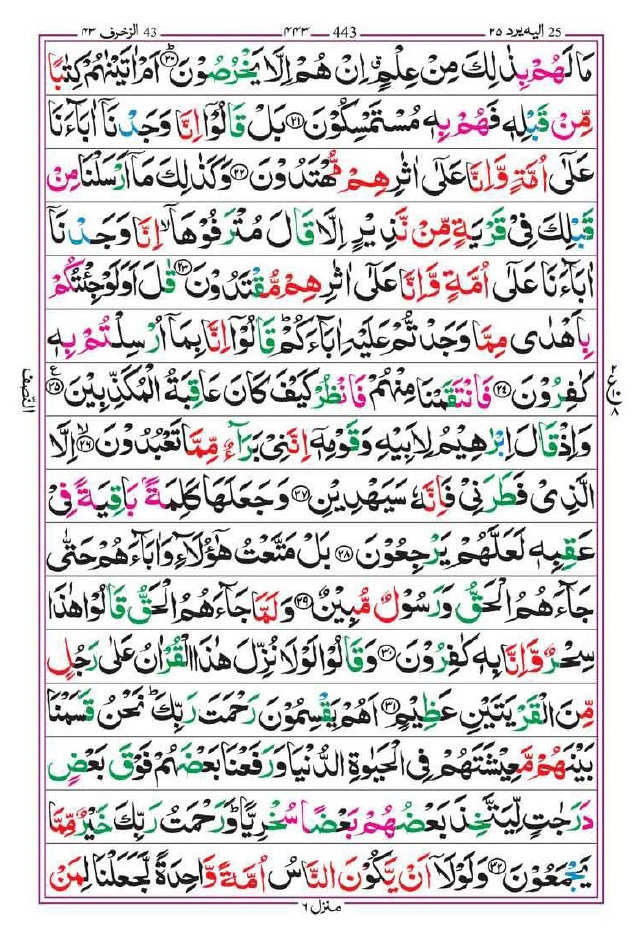 25 الیه یرد ٢٥ 443 ٤٤٣ 43 الزخرف ٤٣
مَا لَهُمْ بِذٰلِكَ مِنْ عِلْمٍ ۗ اِنْ هُمْ اِلَّا يَخْرُصُوْنَ ؕ﴿۲۰﴾ اَمْ اٰتَيْنٰهُمْ كِتٰبًا
مِّنْ قَبْلِهٖ فَهُمْ بِهٖ مُسْتَمْسِكُوْنَ ﴿۲۱﴾ بَلْ قَالُوْۤا اِنَّا وَجَدْنَاۤ اٰبَآءَنَا
عَلٰۤى اُمَّةٍ وَّاِنَّا عَلٰۤى اٰثٰرِهِمْ مُّهْتَدُوْنَ ﴿۲۲﴾ وَكَذٰلِكَ مَاۤ اَرْسَلْنَا مِنْ
قَبْلِكَ فِيْ قَرْيَةٍ مِّنْ نَّذِيْرٍ اِلَّا قَالَ مُتْرَفُوْهَاۤ ۙ اِنَّا وَجَدْنَاۤ
اٰبَآءَنَا عَلٰۤى اُمَّةٍ وَّاِنَّا عَلٰۤى اٰثٰرِهِمْ مُّقْتَدُوْنَ ﴿۲۳﴾ قٰلَ اَوَلَوْ جِئْتُكُمْ
بِاَهْدٰى مِمَّا وَجَدْتُّمْ عَلَيْهِ اٰبَآءَكُمْ ؕ قَالُوْۤا اِنَّا بِمَاۤ اُرْسِلْتُمْ بِهٖ
كٰفِرُوْنَ ﴿۲۴﴾ فَانْتَقَمْنَا مِنْهُمْ فَانْظُرْ كَيْفَ كَانَ عَاقِبَةُ الْمُكَذِّبِيْنَ ﴿۲۵﴾ ع
٢ ع ٨
النّصف
وَاِذْ قَالَ اِبْرٰهِيْمُ لِاَبِيْهِ وَقَوْمِهٖۤ اِنَّنِيْ بَرَآءٌ مِّمَّا تَعْبُدُوْنَ ۙ﴿۲۶﴾ اِلَّا
الَّذِيْ فَطَرَنِيْ فَاِنَّهٗ سَيَهْدِيْنِ ﴿۲۷﴾ وَجَعَلَهَا كَلِمَةًۢ بَاقِيَةً فِيْ
عَقِبِهٖ لَعَلَّهُمْ يَرْجِعُوْنَ ﴿۲۸﴾ بَلْ مَتَّعْتُ هٰۤؤُلَآءِ وَاٰبَآءَهُمْ حَتّٰى
جَآءَهُمُ الْحَقُّ وَرَسُوْلٌ مُّبِيْنٌ ﴿۲۹﴾ وَلَمَّا جَآءَهُمُ الْحَقُّ قَالُوْا هٰذَا
سِحْرٌ وَّاِنَّا بِهٖ كٰفِرُوْنَ ﴿۳۰﴾ وَقَالُوْا لَوْلَا نُزِّلَ هٰذَا الْقُرْاٰنُ عَلٰى رَجُلٍ
مِّنَ الْقَرْيَتَيْنِ عَظِيْمٍ ﴿۳۱﴾ اَهُمْ يَقْسِمُوْنَ رَحْمَتَ رَبِّكَ ؕ نَحْنُ قَسَمْنَا
بَيْنَهُمْ مَّعِيْشَتَهُمْ فِي الْحَيٰوةِ الدُّنْيَا وَرَفَعْنَا بَعْضَهُمْ فَوْقَ بَعْضٍ
دَرَجٰتٍ لِّيَتَّخِذَ بَعْضُهُمْ بَعْضًا سُخْرِيًّا ؕ وَرَحْمَتُ رَبِّكَ خَيْرٌ مِّمَّا
يَجْمَعُوْنَ ﴿۳۲﴾ وَلَوْلَاۤ اَنْ يَّكُوْنَ النَّاسُ اُمَّةً وَّاحِدَةً لَّجَعَلْنَا لِمَنْ
منزل ٦